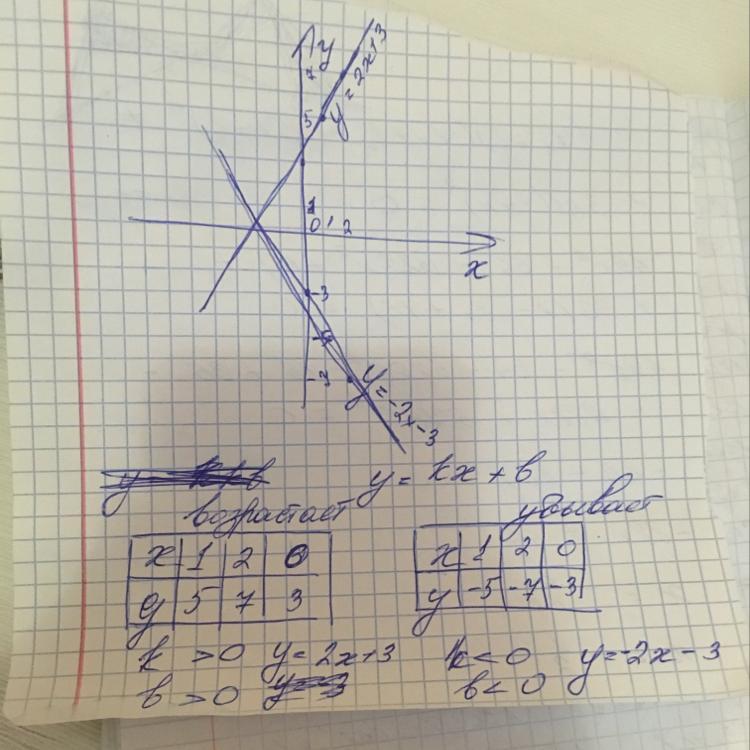 y
7
y = 2x+3
5
1
0 1 2
x
-3
-3
y = -2x-3
y = kx + b
возрастает убывает
x 1 2 0
y 5 7 3
x 1 2 0
y -5 -7 -3
k > 0 y = 2x+3 k < 0 y = -2x - 3
b > 0 b < 0